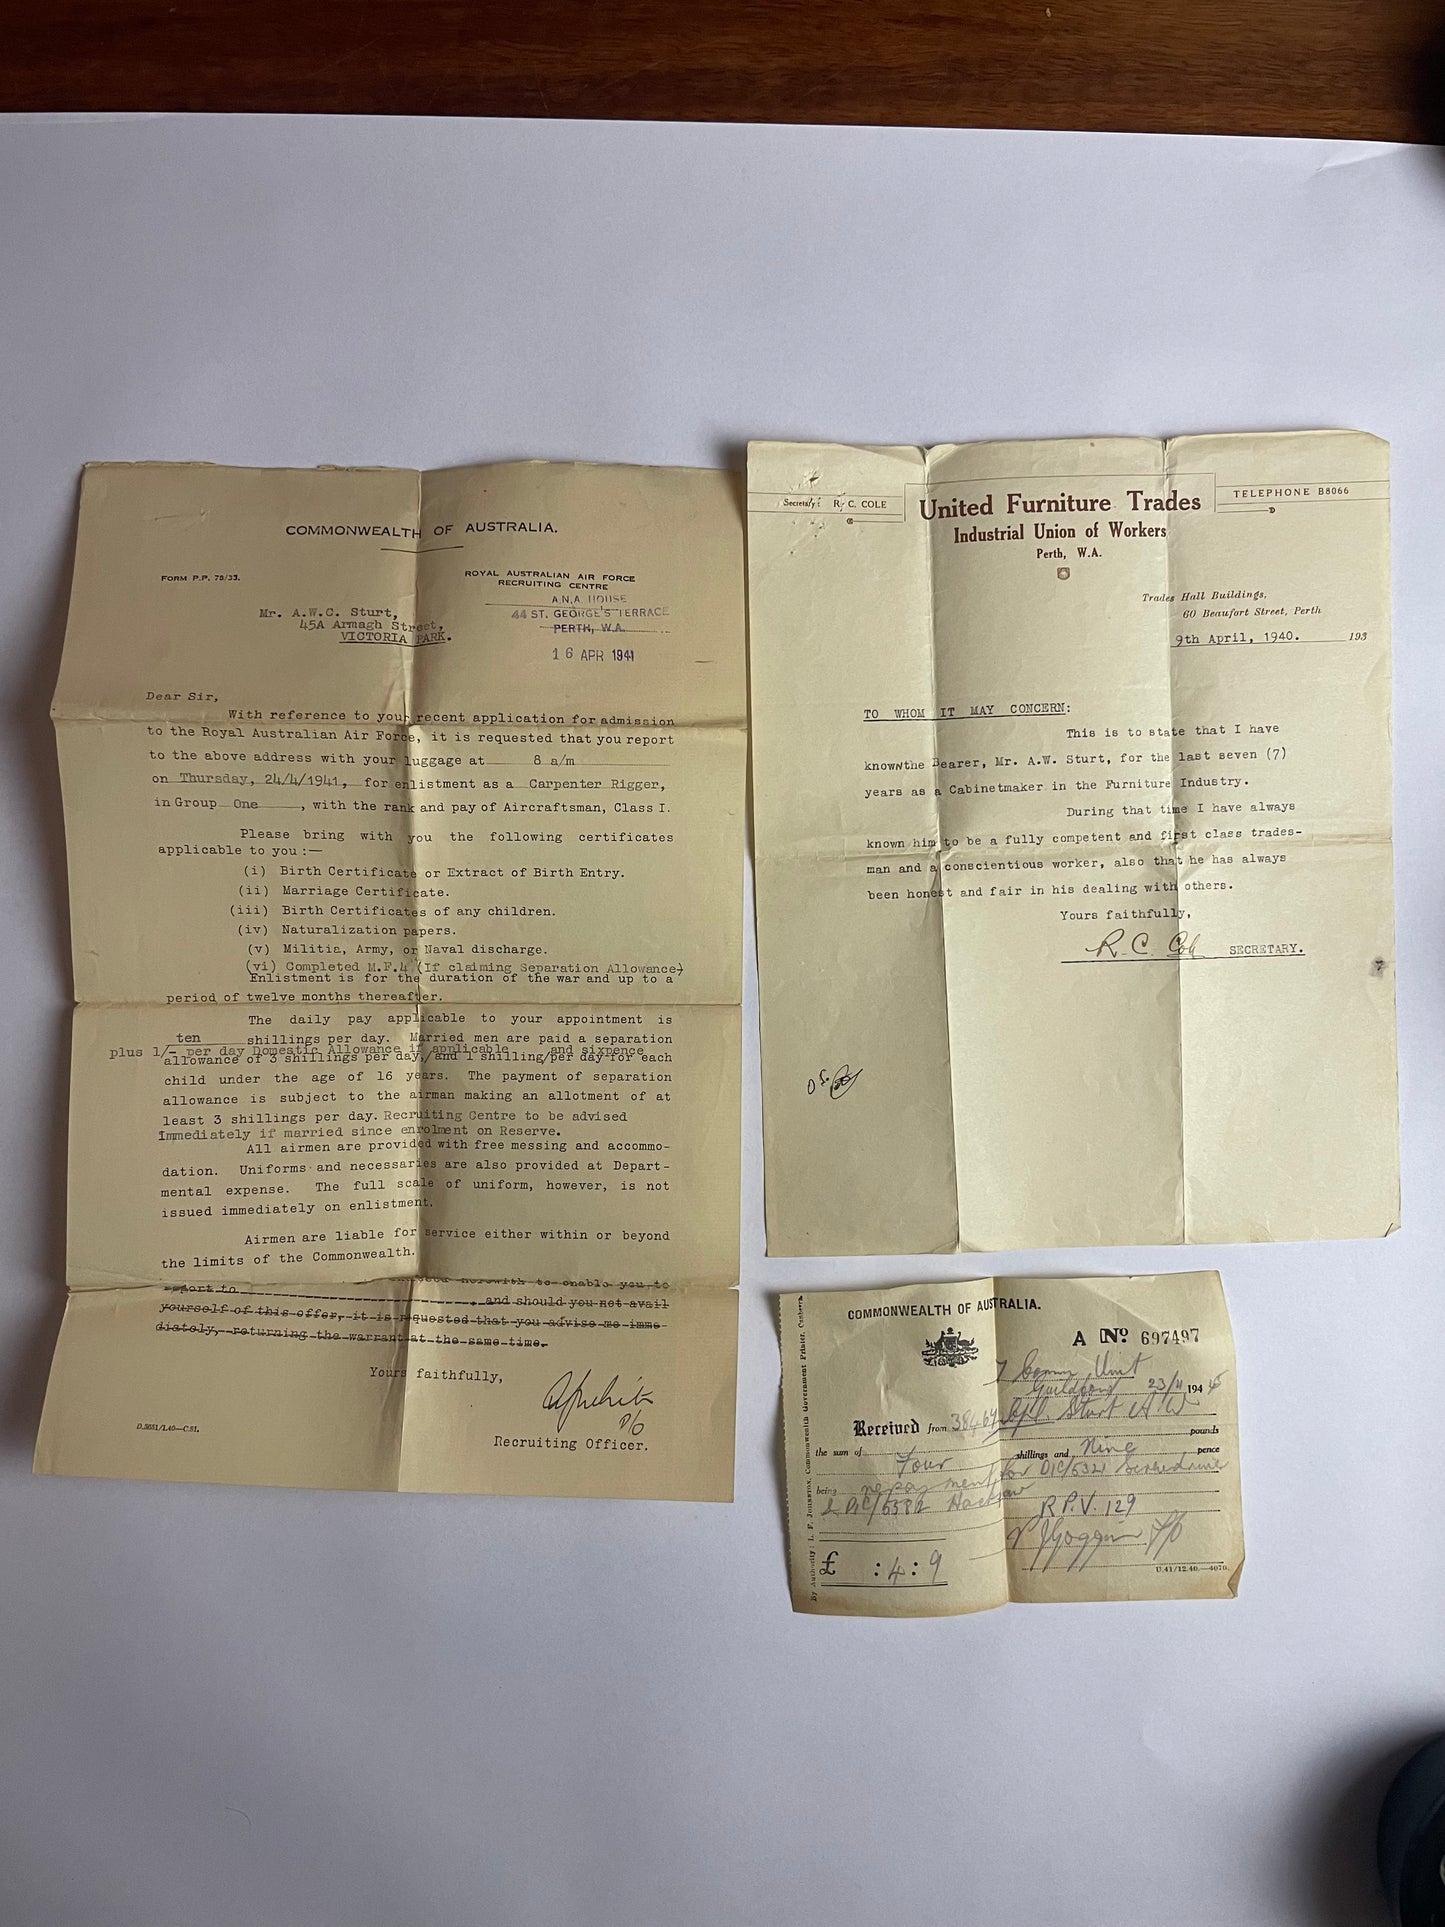 COMMONWEALTH OF AUSTRALIA.
FORM P.P. 78/33.
ROYAL AUSTRALIAN AIR FORCE
RECRUITING CENTRE
A.N.A. HOUSE
44 ST. GEORGE'S TERRACE
PERTH, W.A.
16 APR 1941
Mr. A.W.C. Sturt,
45A Armagh Street,
VICTORIA PARK.
Dear Sir,
With reference to your recent application for admission
to the Royal Australian Air Force, it is requested that you report
to the above address with your luggage at 8 a/m
on Thursday, 24/4/1941, for enlistment as a Carpenter Rigger,
in Group One, with the rank and pay of Aircraftsman, Class I.
Please bring with you the following certificates
applicable to you :—
(i) Birth Certificate or Extract of Birth Entry.
(ii) Marriage Certificate.
(iii) Birth Certificates of any children.
(iv) Naturalization papers.
(v) Militia, Army, or Naval discharge.
(vi) Completed M.F.4 (If claiming Separation Allowance)
Enlistment is for the duration of the war and up to a
period of twelve months thereafter.
The daily pay applicable to your appointment is
ten shillings per day. Married men are paid a separation
plus 1/- per day Domestic Allowance if applicable and sixpence
allowance of 3 shillings per day,/and 1 shilling/per day for each
child under the age of 16 years. The payment of separation
allowance is subject to the airman making an allotment of at
least 3 shillings per day. Recruiting Centre to be advised
Immediately if married since enrolment on Reserve.
All airmen are provided with free messing and accommo-
dation. Uniforms and necessaries are also provided at Depart-
mental expense. The full scale of uniform, however, is not
issued immediately on enlistment.
Airmen are liable for service either within or beyond
the limits of the Commonwealth.
herewith to enable you to
report to , and should you not avail
yourself of this offer, it is requested that you advise me imme-
diately, returning the warrant at the same time.
Yours faithfully,
P/O
Recruiting Officer.
D.5651/1.40—C.81.
Secretary: R. C. COLE
United Furniture Trades
Industrial Union of Workers
Perth, W.A.
TELEPHONE B8066
Trades Hall Buildings,
60 Beaufort Street, Perth
9th April, 1940. 193
TO WHOM IT MAY CONCERN:
This is to state that I have
known the Bearer, Mr. A.W. Sturt, for the last seven (7)
years as a Cabinetmaker in the Furniture Industry.
During that time I have always
known him to be a fully competent and first class trades-
man and a conscientious worker, also that he has always
been honest and fair in his dealing with others.
Yours faithfully,
R. C. Cole SECRETARY.
COMMONWEALTH OF AUSTRALIA.
A No 697497
7 Comm Unit
Guildford 23/11 1945
Received from 38464 Cpl. Sturt A W
pounds
the sum of Four shillings and Nine pence
being repayment for 01C/5321 Screwdriver
& 01C/5382 Hacksaw R.P.V. 129
£ : 4 : 9
U.41/12.40.—4070.
By Authority: L. F. JOHNSTON, Commonwealth Government Printer, Canberra